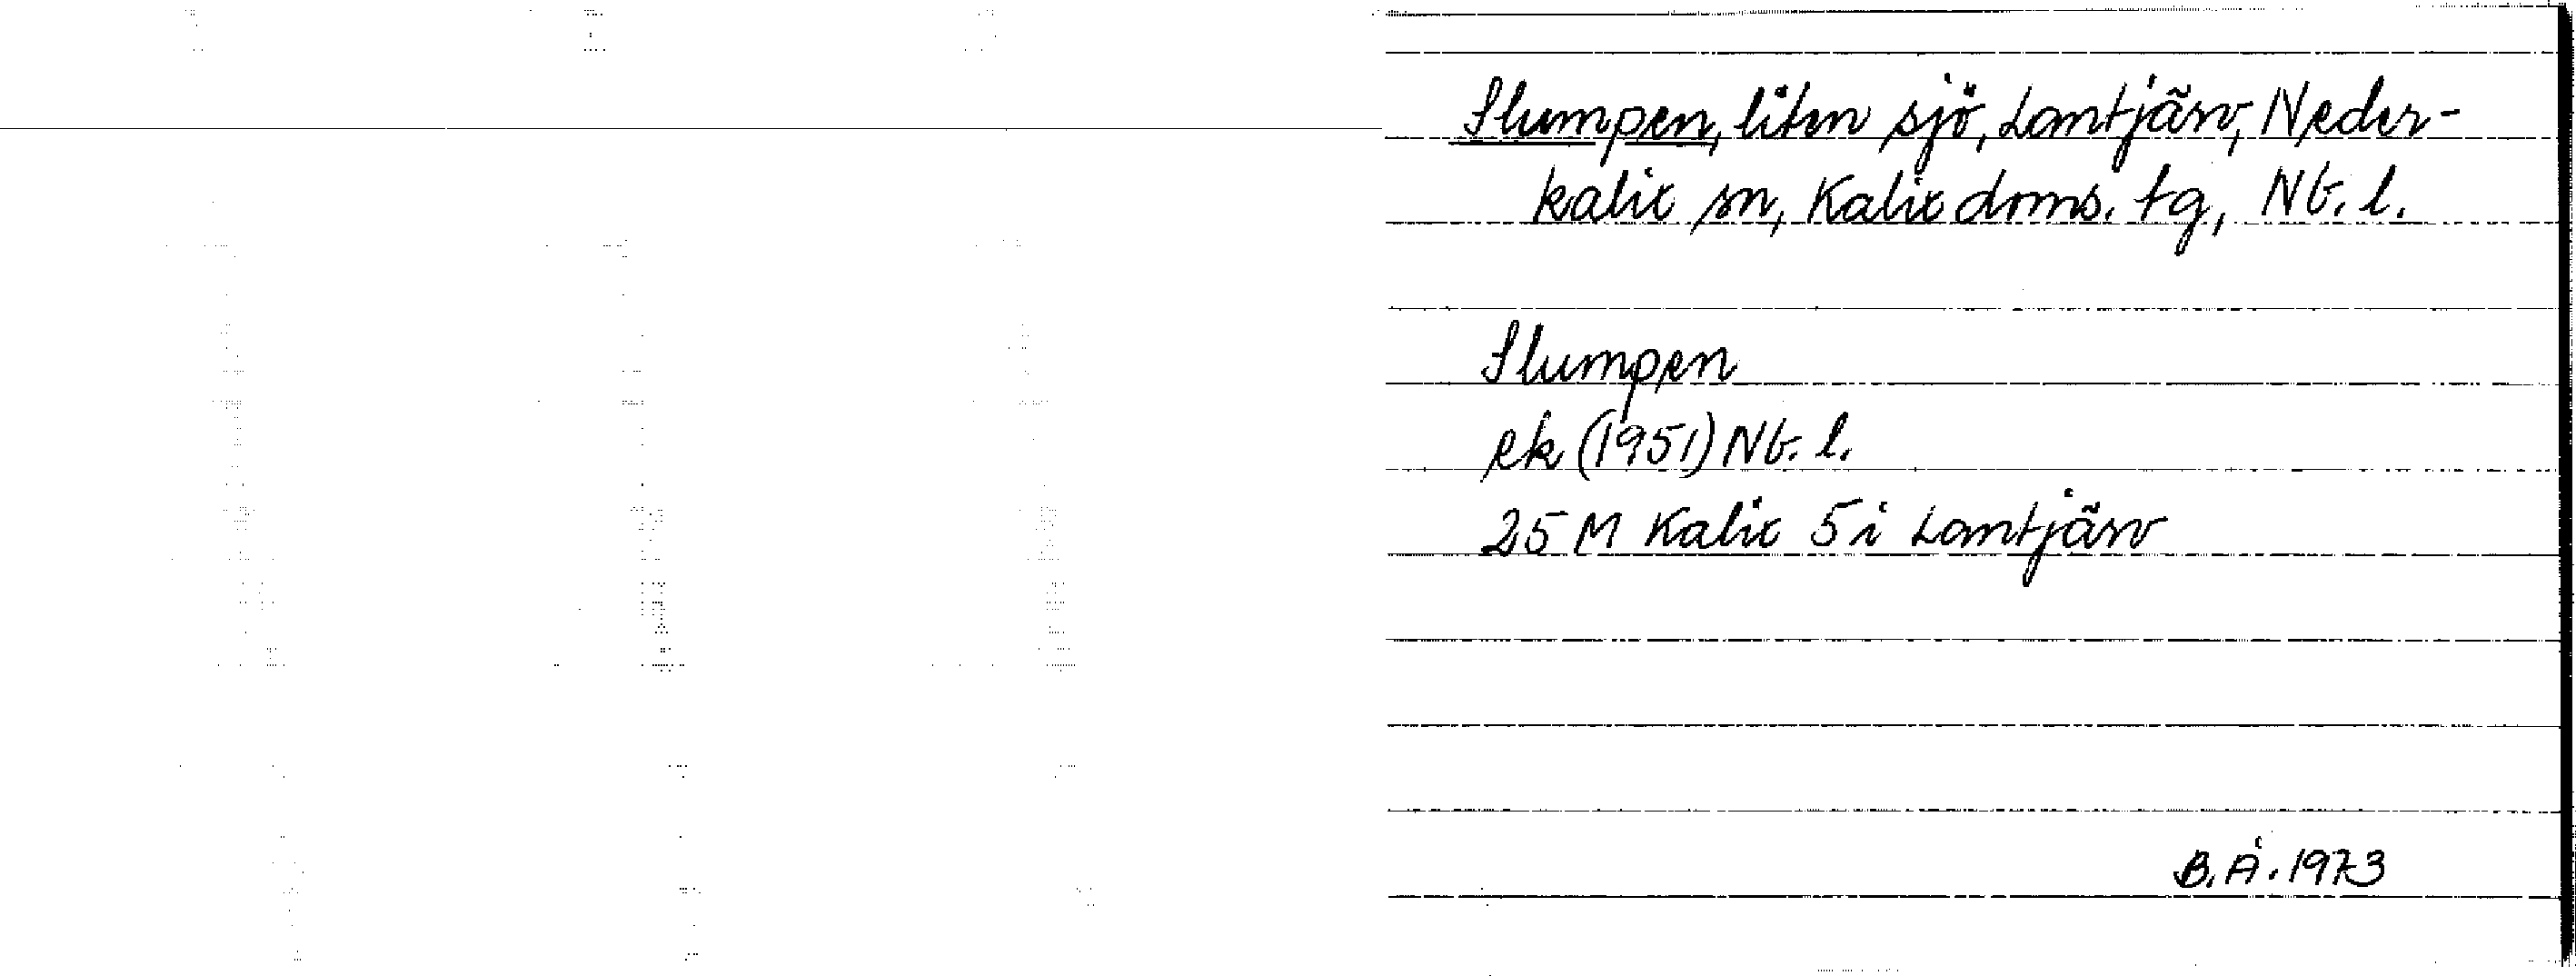 Slumpen, liten sjö, Lantjärv, Neder-
kalix sn, Kalix doms. tg, Nb. l.
Slumpen
ek (1951) Nb. l.
25 M Kalix 5 i Lantjärv
B.Å. 1973